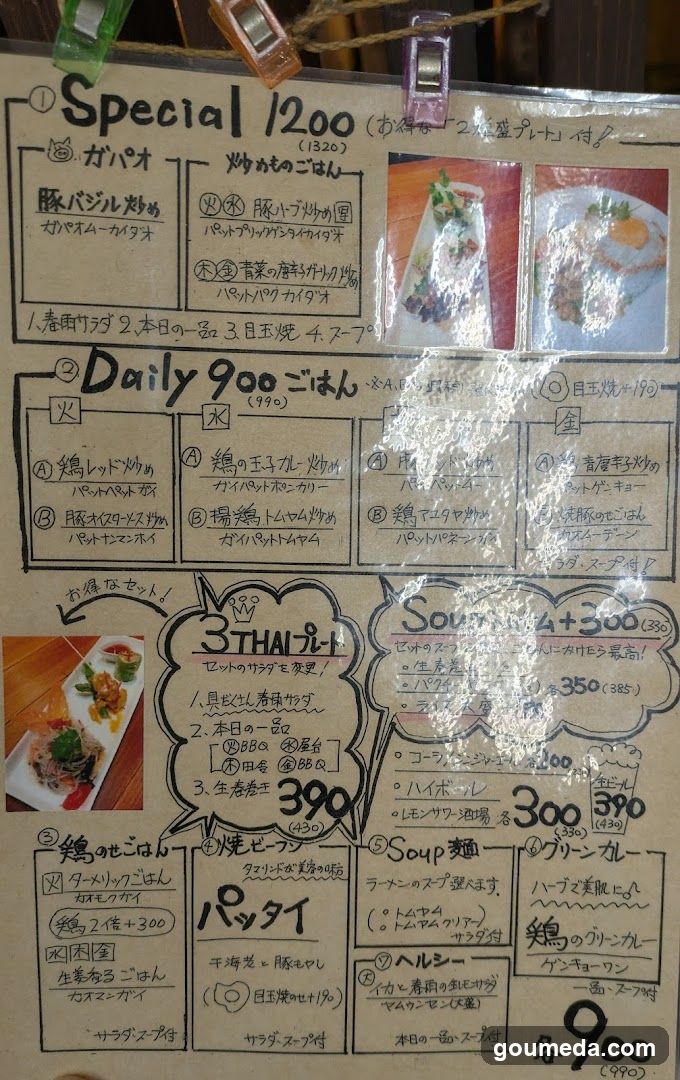 ① Special 1200 (お得な「2種盛プレート」付!
(1320)
ガパオ
豚バジル炒め
ガパオムーカイダオ
炒めものごはん
火 水 豚ハーブ炒め
パットプリックゲンタイカイダオ
木 金 青菜の唐辛ガーリック炒め
パットパクカイダオ
1、春雨サラダ 2、本日の一品 3、目玉焼 4、スープ
② Daily 900 ごはん
(990)
目玉焼+190)
火
Ⓐ 鶏レッド炒め
パットペットガイ
Ⓑ 豚オイスターソース炒め
パットナンマンホイ
水
Ⓐ 鶏の玉子カレー炒め
ガイパットポンカリー
Ⓑ 揚鶏トムヤム炒め
ガイパットトムヤム
Ⓐ
パットペットムー
Ⓑ 鶏アユタヤ炒め
パットパネーンガイ
金
Ⓐ 鶏青唐辛子炒め
パットゲンキョー
焼豚のせごはん
カオムーデーン
サラダ・スープ付!
お得なセット!
3THAIプレート
セットのサラダを変更!
1、具だくさん春雨サラダ
2、本日の一品
火BBQ 水屋台
木田舎 金BBQ
3、生春巻き 390
(430)
Soup +300 (330)
ごはんにかけたら最高!
。生春巻
。パクチー
。ライス大盛
各350 (385)
。コーラ
。ハイボール
。レモンサワー酒場 各300
(330)
生ビール
390
(430)
③ 鶏のせごはん
火 ターメリックごはん
カオモクガイ
鶏2倍+300
水 木 金
生姜香るごはん
カオマンガイ
サラダ・スープ付
④ 焼ビーフン
タマリンドが美容の味方
パッタイ
干海老と豚もやし
(目玉焼のせ+190)
サラダ・スープ付
⑤ Soup麺
ラーメンのスープ選べます。
(。トムヤム
。トムヤムクリアー)
サラダ付
⑦ ヘルシー
イカと春雨の生レモンサラダ
ヤムウンセン(大盛)
本日の一品・スープ付
⑥ グリーンカレー
ハーブで美肌に♪
鶏のグリーンカレー
ゲンキョーワン
一品・スープ付
900
(990)
goumeda.com